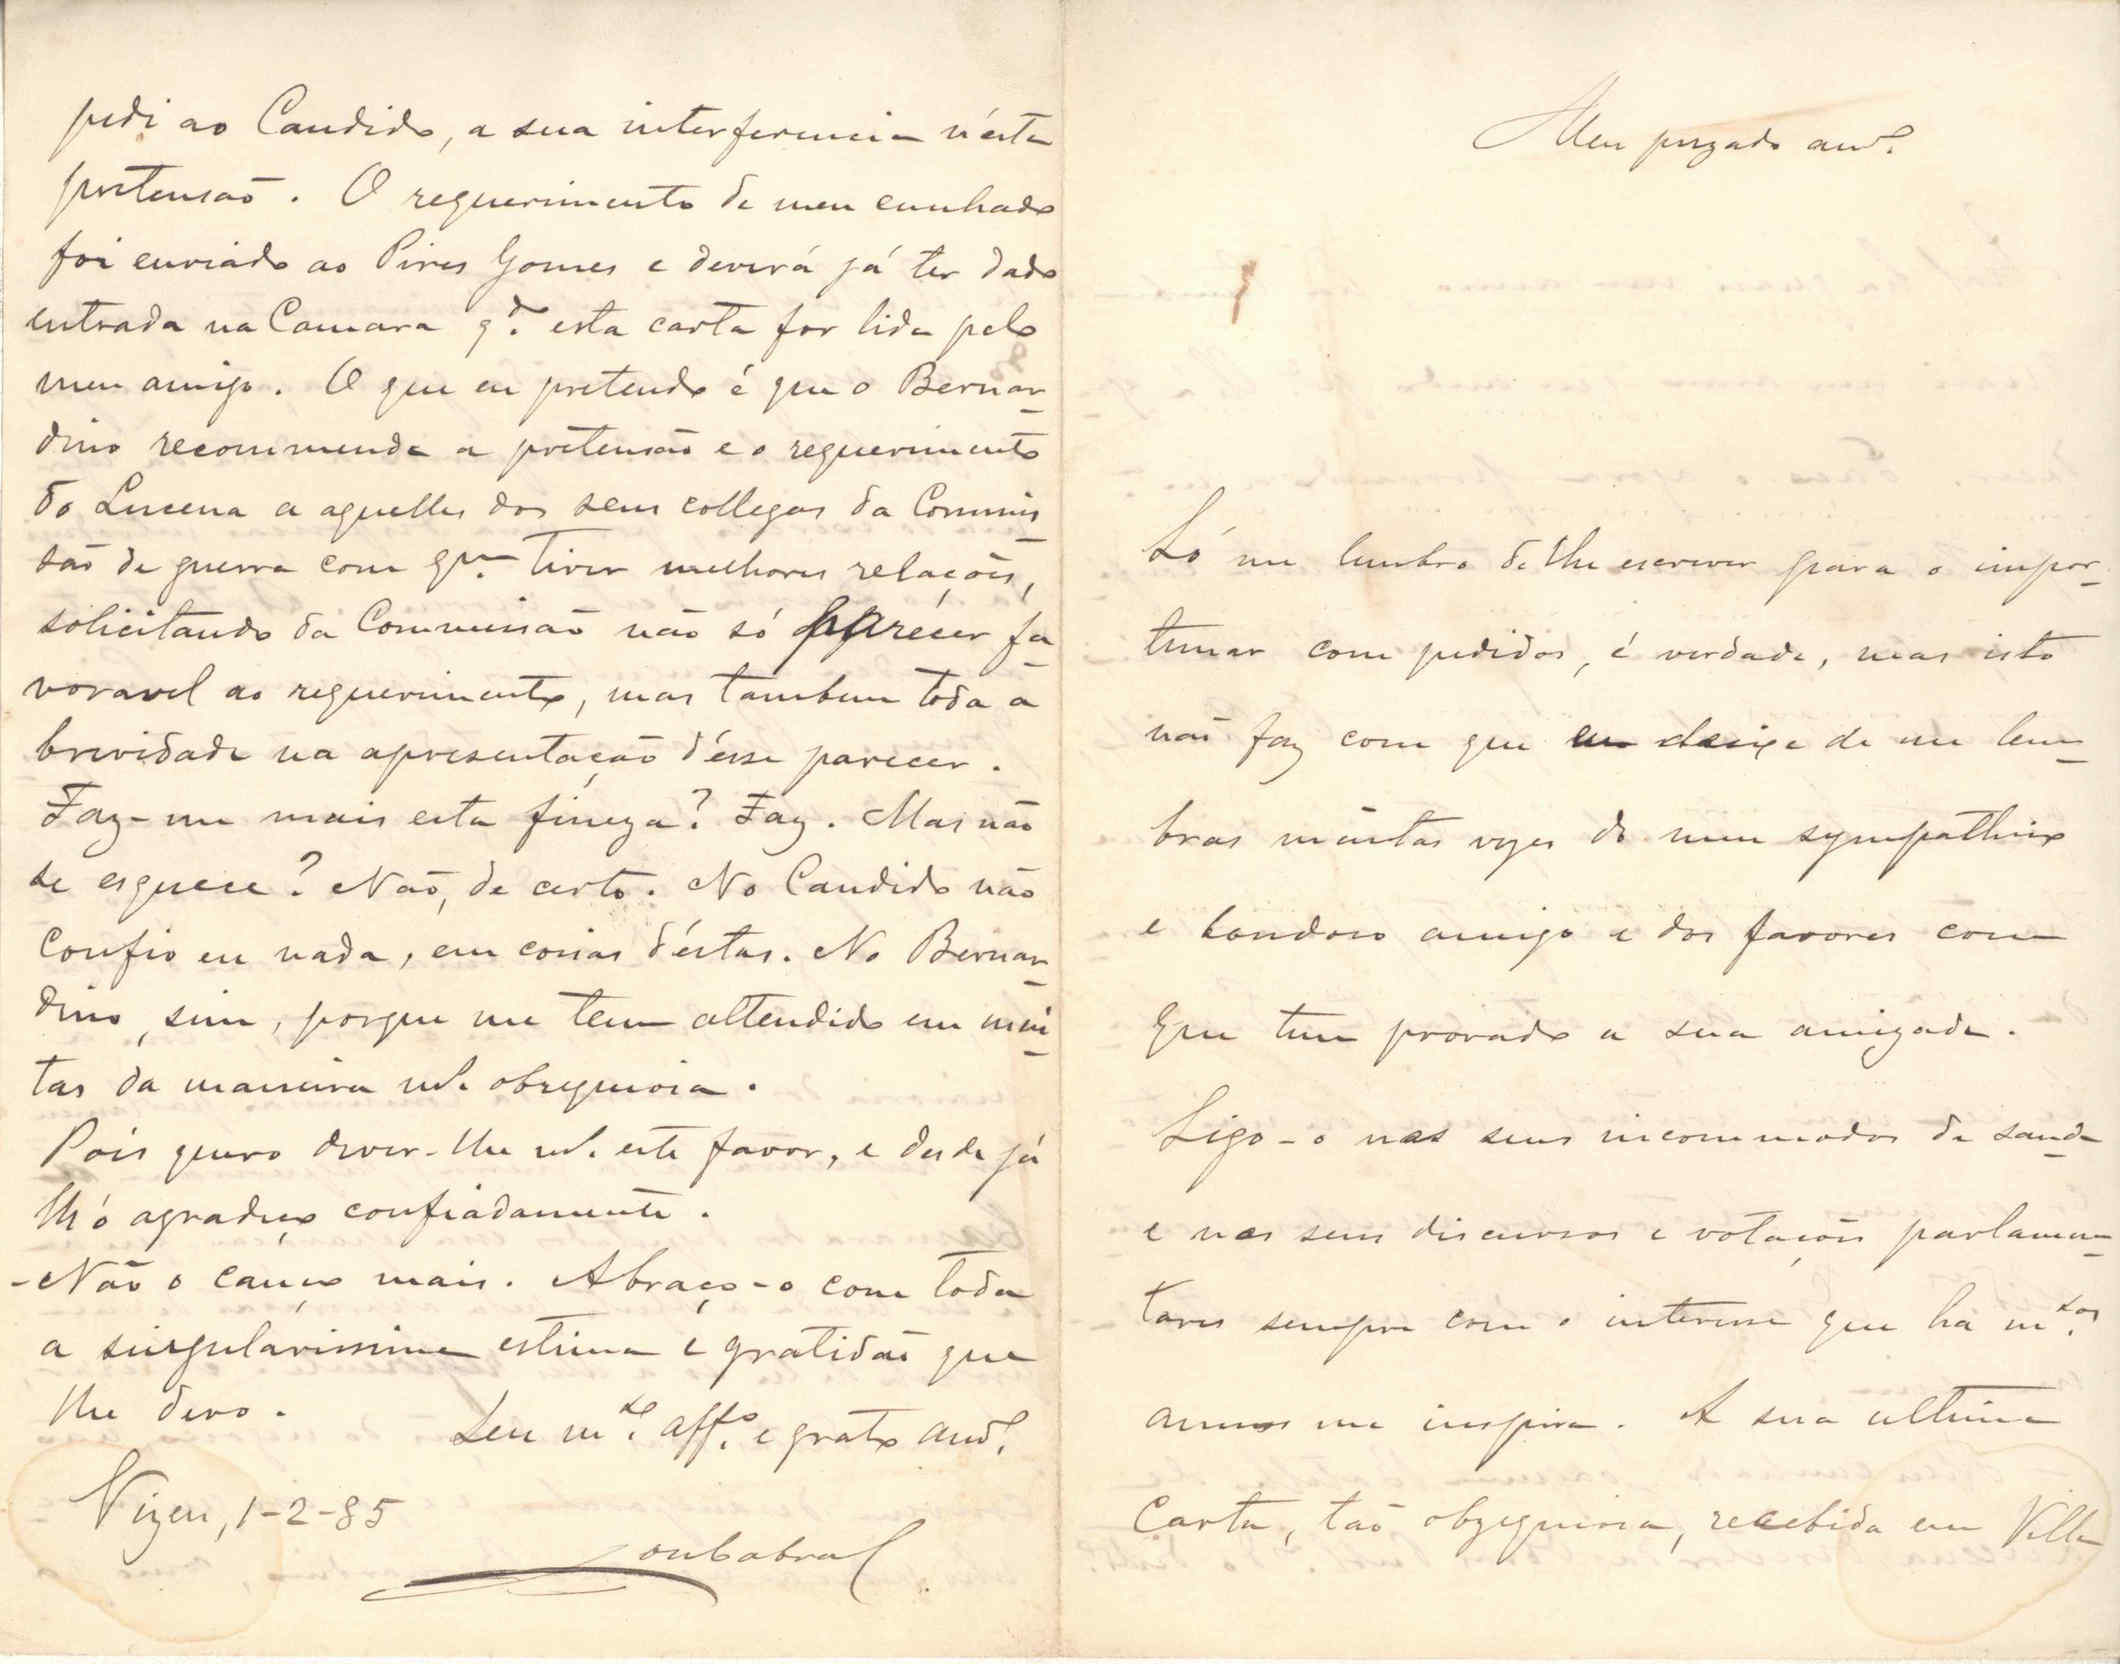 Meu prezado am.º
Só me lembro de lhe escrever para o impor-
tunar com pedidos, é verdade, mas isto
não faz com que eu deixe de me lem-
brar muitas vezes do meu sympathico
e bondoso amigo e dos favores com
que tem provado a sua amizade.
Sigo-o nos seus incommodos de saude
e nos seus discursos e votações parlamen-
tares sempre com o interesse que ha m.tos
annos me inspira. A sua ultima
Carta, tão obzequiosa, recebida em Villa
pedi ao Candido, a sua interferencia n'ésta
pretensão. O requerimento de meu cunhado
foi enviado ao Pires Gomes e deverá já ter dado
entrada na Camara q.do esta carta for lida pelo
meu amigo. O que eu pretendo é que o Bernar-
dino recommende a pretensão e o requerimento
do Lucena a aquelles dos seus collegas da Commis-
são de guerra com q.m tiver melhores relações,
solicitando da Commissão não só parecer fa-
voravel ao requerimento, mas tambem toda a
brevidade na apresentação d'ésse parecer.
Faz-me mais esta fineza? Faz. Mas não
se esquece? Não, de certo. No Candido não
Confio eu nada, em coisas d'éstas. No Bernar-
dino, sim, porque me tem attendido em mui-
tas da maneira m.s obzequiosa.
Pois quero dever-lhe m.s este favor, e desde já
lh'o agradeço confiadamente.
-Não o canço mais. Abraço-o com toda
a singularissima estima e gratidão que
lhe devo.
Seu m.to aff.º e grato am.º
Vizeu, 1-2-85